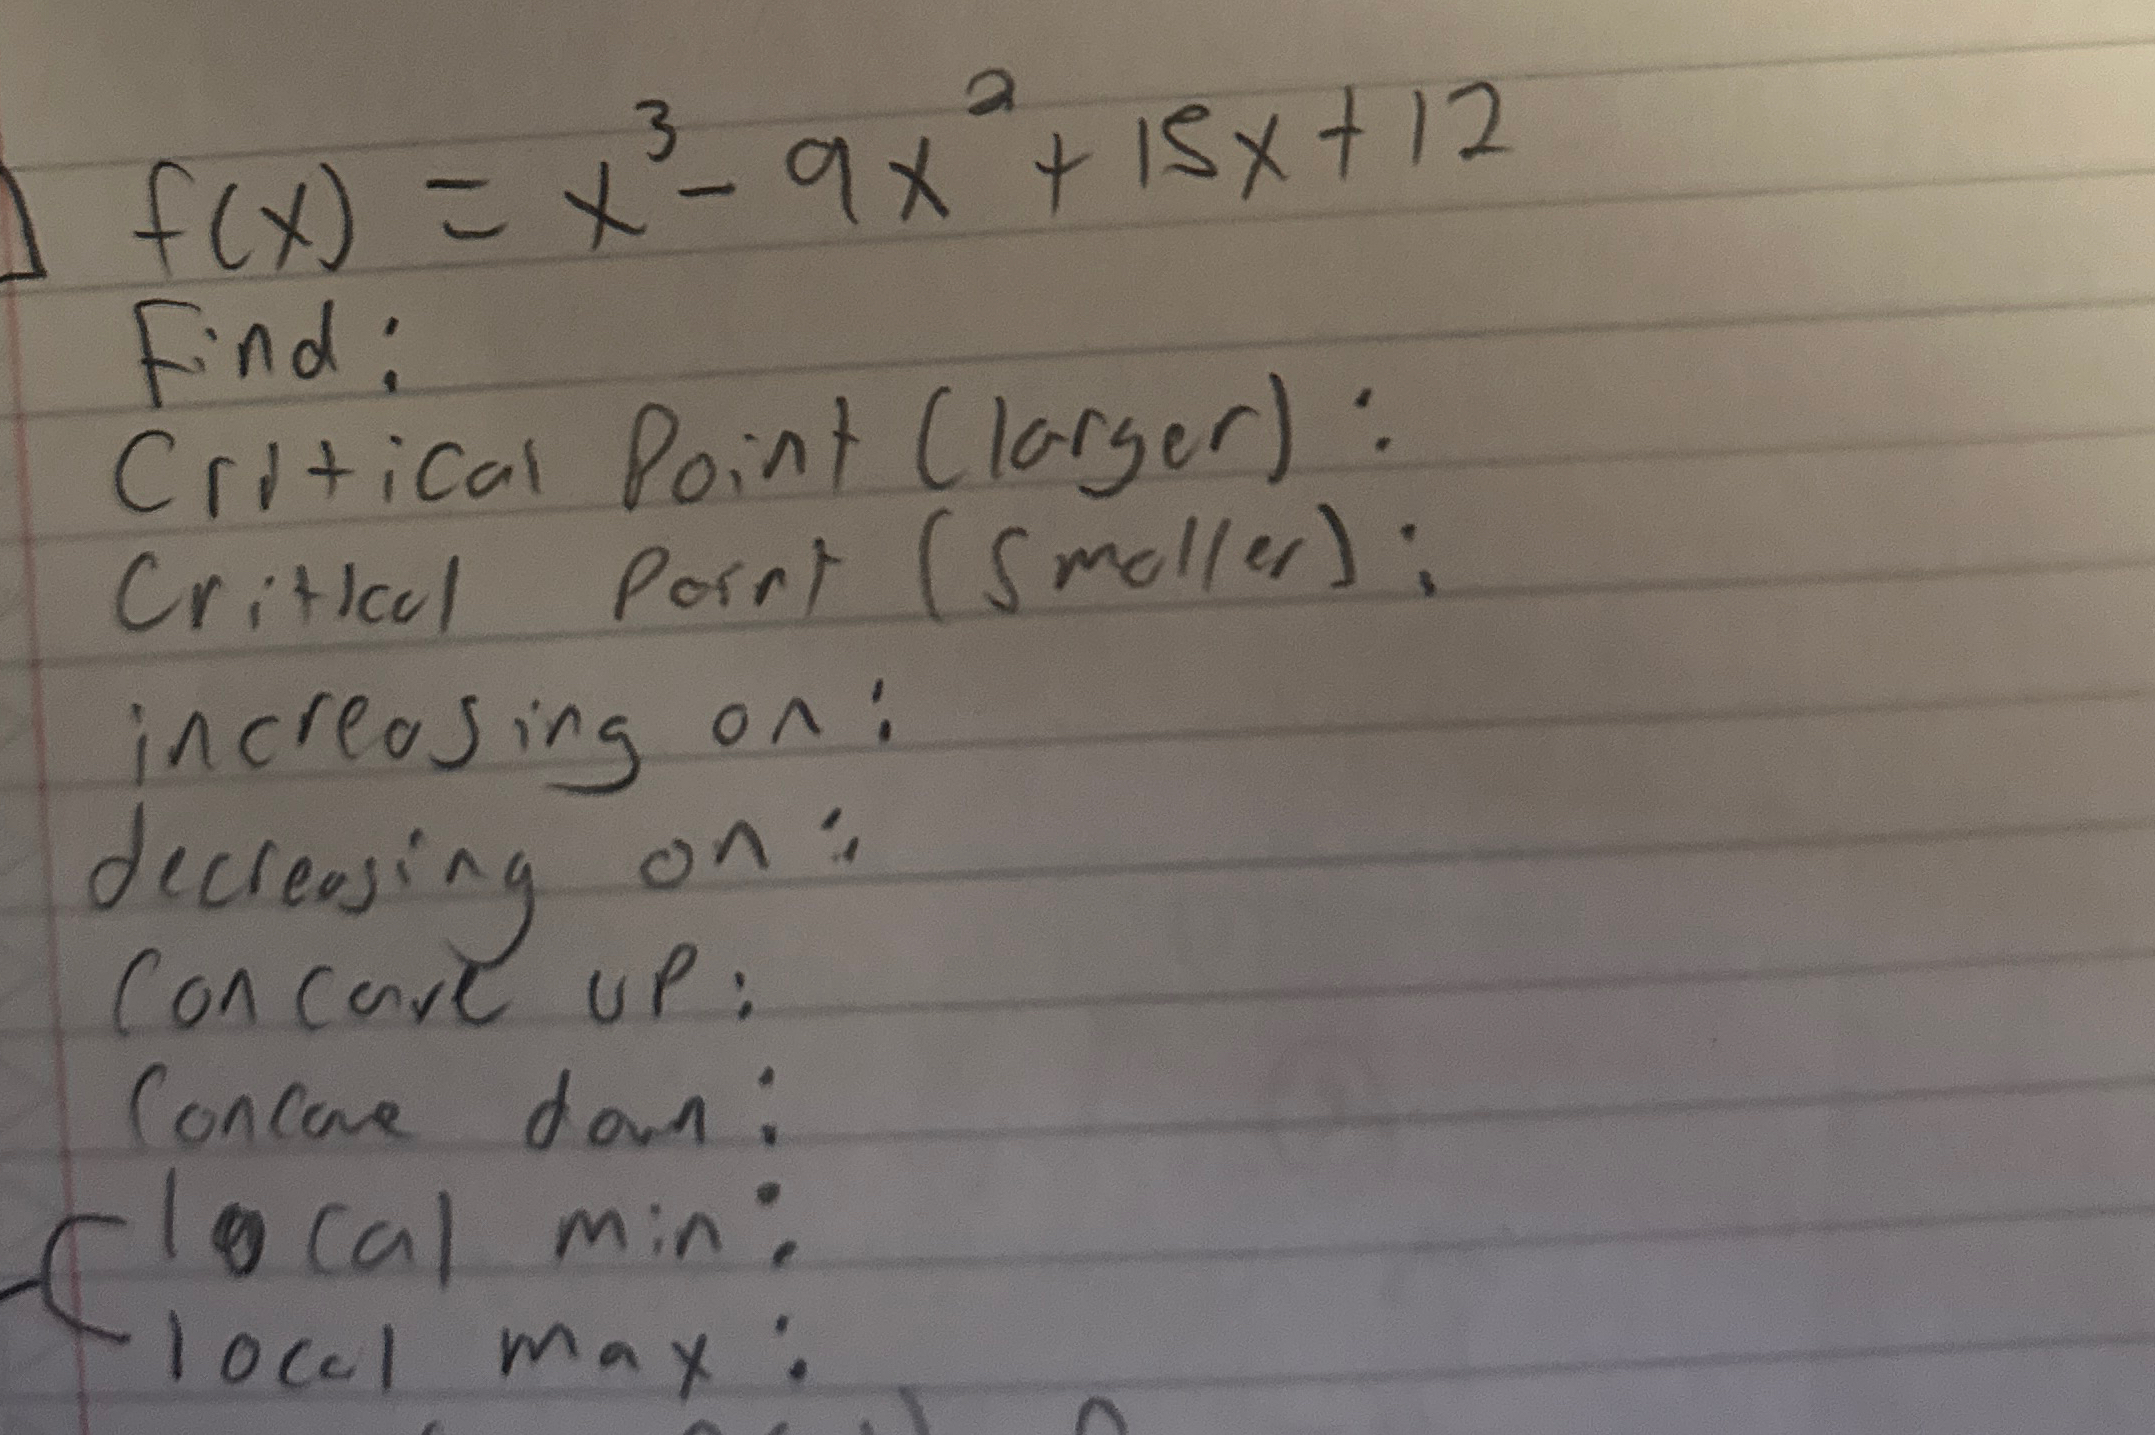 f(x) = x³ - 9x² + 15x + 12
Find:
Critical Point (larger):
Critical Point (smaller):
increasing on:
decreasing on:
Concave up:
Concave down:
local min:
local max: